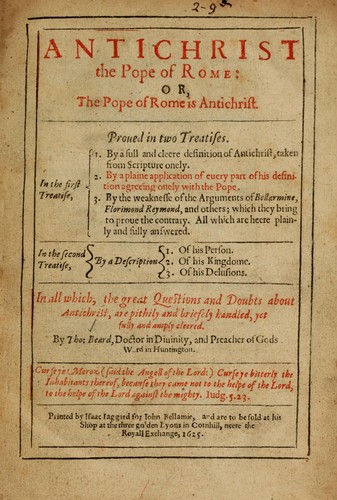 2-9
ANTICHRIST
the Pope of ROME:
OR,
The Pope of Rome is Antichriſt.
Proued in two Treatiſes.
In the firſt Treatiſe,
1. By a full and cleere definition of Antichriſt, taken
from Scripture onely.
2. By a plaine application of euery part of his defini-
tion agreeing onely with the Pope.
3. By the weakneſſe of the Arguments of Bellarmine,
Florimond Reymond, and others; which they bring
to proue the contrary. All which are heere plain-
ly and fully anſwered.
In the ſecond Treatiſe,
By a Deſcription
1. Of his Perſon.
2. Of his Kingdome.
3. Of his Deluſions.
In all which, the great Queſtions and Doubts about
Antichriſt, are pithily and briefely handled, yet
fully and amply cleered.
By Tho: Beard, Doctor in Diuinity, and Preacher of Gods
Word in Huntington.
Curſe ye Meroz (ſaid the Angell of the Lord:) Curſe ye bitterly the
Inhabitants thereof, becauſe they came not to the helpe of the Lord,
to the helpe of the Lord againſt the mighty. Iudg. 5.23.
Printed by Iſaac Iaggard for Iohn Bellamie, and are to be ſold at his
Shop at the three golden Lyons in Cornhill, neere the
Royall Exchange, 1625.